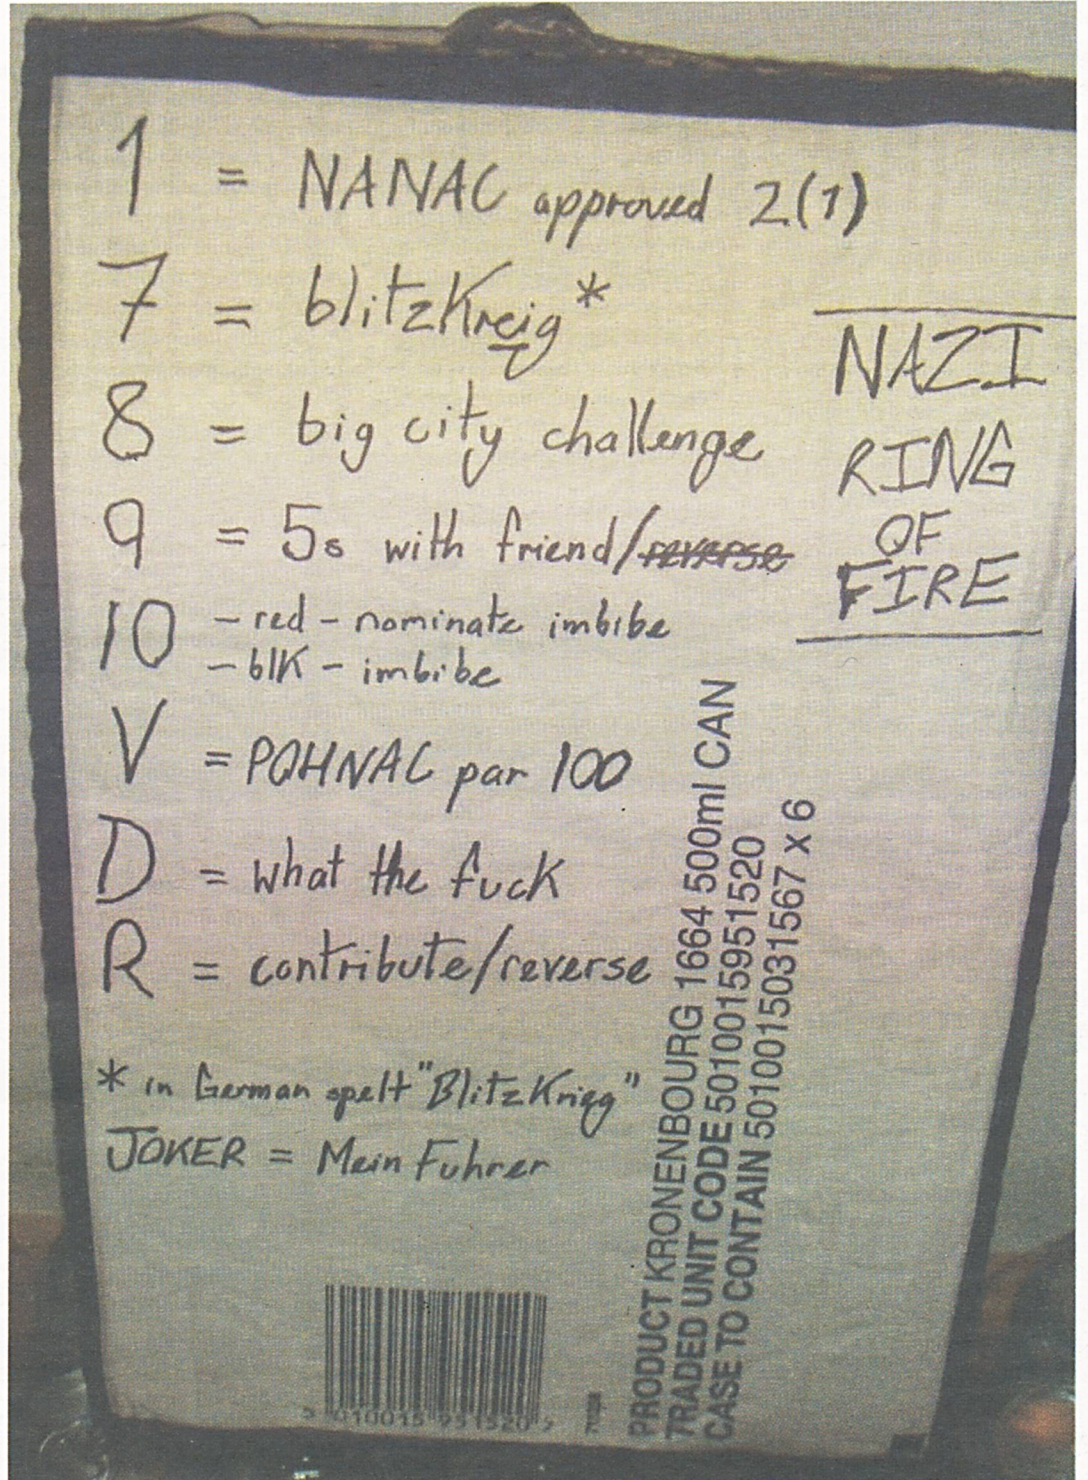 1 = NANAC approved 2(1)
7 = blitzkreig*
8 = big city challenge
9 = 5s with friend/reverse
10 - red - nominate imbibe
- blk - imbibe
V = PQHNAC par 100
D = what the fuck
R = contribute/reverse
* in German spelt "Blitzkrieg"
JOKER = Mein Fuhrer
NAZI
RING
OF
FIRE
PRODUCT KRONENBOURG 1664 500ml CAN
TRADED UNIT CODE 5010015951520
CASE TO CONTAIN 5010015031567 x 6
5 010015 951520